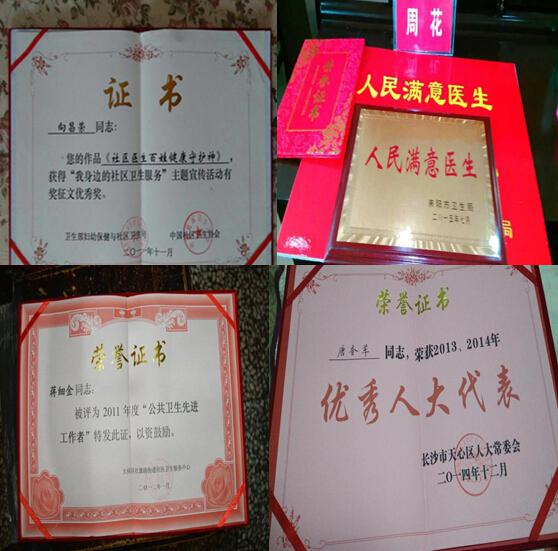 证书
向昌荣 同志:
您的作品《社区医生百姓健康守护神》,
获得“我身边的社区卫生服务”主题宣传活动有
奖征文优秀奖。
卫生部妇幼保健与社区卫生司 中国社区卫生协会
二〇一一年十一月
周花
荣誉证书
人民满意医生
人民满意医生
耒阳市卫生局
二〇一五年七月
局
荣誉证书
蒋细金同志:
被评为 2011 年度“公共卫生先进
工作者”特发此证,以资鼓励。
二〇一二年一月
荣誉证书
唐金苹 同志,荣获2013、2014年
优秀人大代表
长沙市天心区人大常委会
二〇一四年十二月